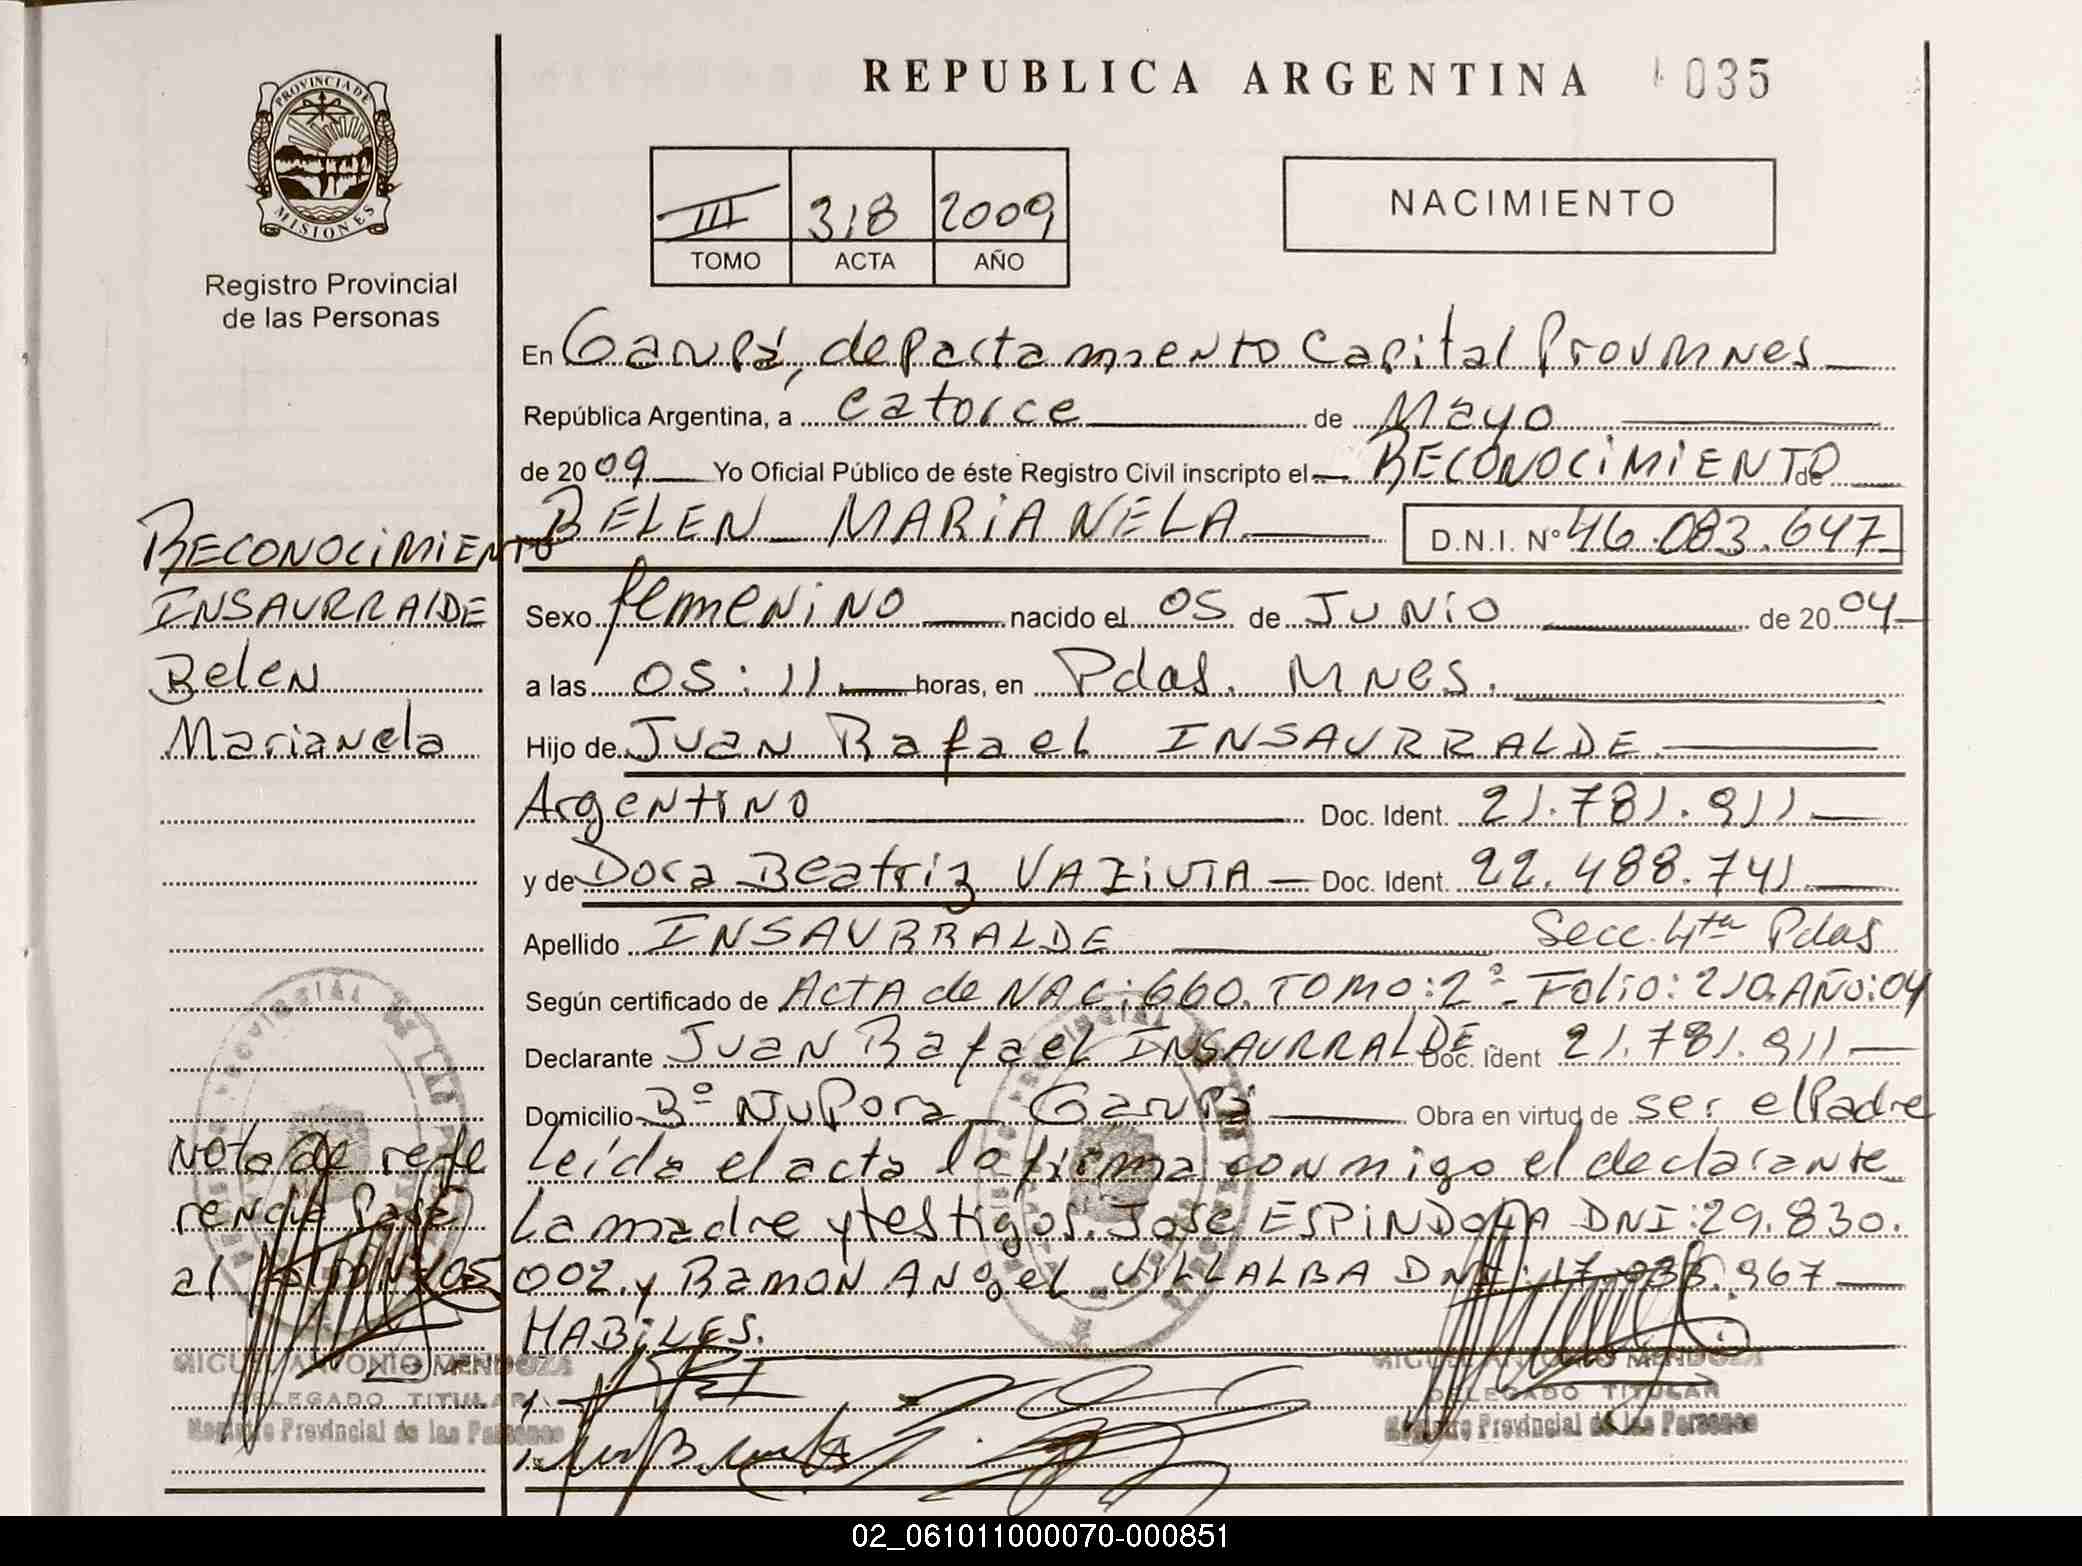 REPUBLICA ARGENTINA 035
PROVINCIA DE
MISIONES
Registro Provincial
de las Personas
III 318 2009
TOMO ACTA AÑO
NACIMIENTO
En Garupá, departamiento Capital Prov Mnes
República Argentina, a catorce de Mayo
de 2009 Yo Oficial Público de éste Registro Civil inscripto el RECONOCIMIENTO de
BELEN MARIANELA D.N.I. Nº 46.083.647
Sexo femenino nacido el 05 de Junio de 2004
a las 05:11 horas, en Pdas. Mnes.
Hijo de Juan Rafael INSAURRALDE
Argentino Doc. Ident. 21.781.911
y de Dora Beatriz Doc. Ident. 22.488.741
Apellido INSAURRALDE Secc. 4ta Pdas
Según certificado de Acta de NAC: 660. TOMO: 2º Folio: 210. AÑO: 04
Declarante Juan Rafael INSAURRALDE Doc. Ident 21.781.911
Domicilio Bº Ñu Pora Garupá Obra en virtud de ser el Padre
Leída el acta la firma conmigo el declarante
La madre y testigos. Jose ESPINDOLA DNI: 29.830.
002. y Ramon Angel VILLALBA DNI: 967
HABILES.
RECONOCIMIENTO
INSAURRALDE
Belen
Marianela
Nota de refe
rencia pasa
al
MIGUEL ANTONIO MENDOZA
DELEGADO TITULAR
Registro Provincial de las Personas
MIGUEL ANTONIO MENDOZA
DELEGADO TITULAR
Registro Provincial de las Personas
02_061011000070-000851